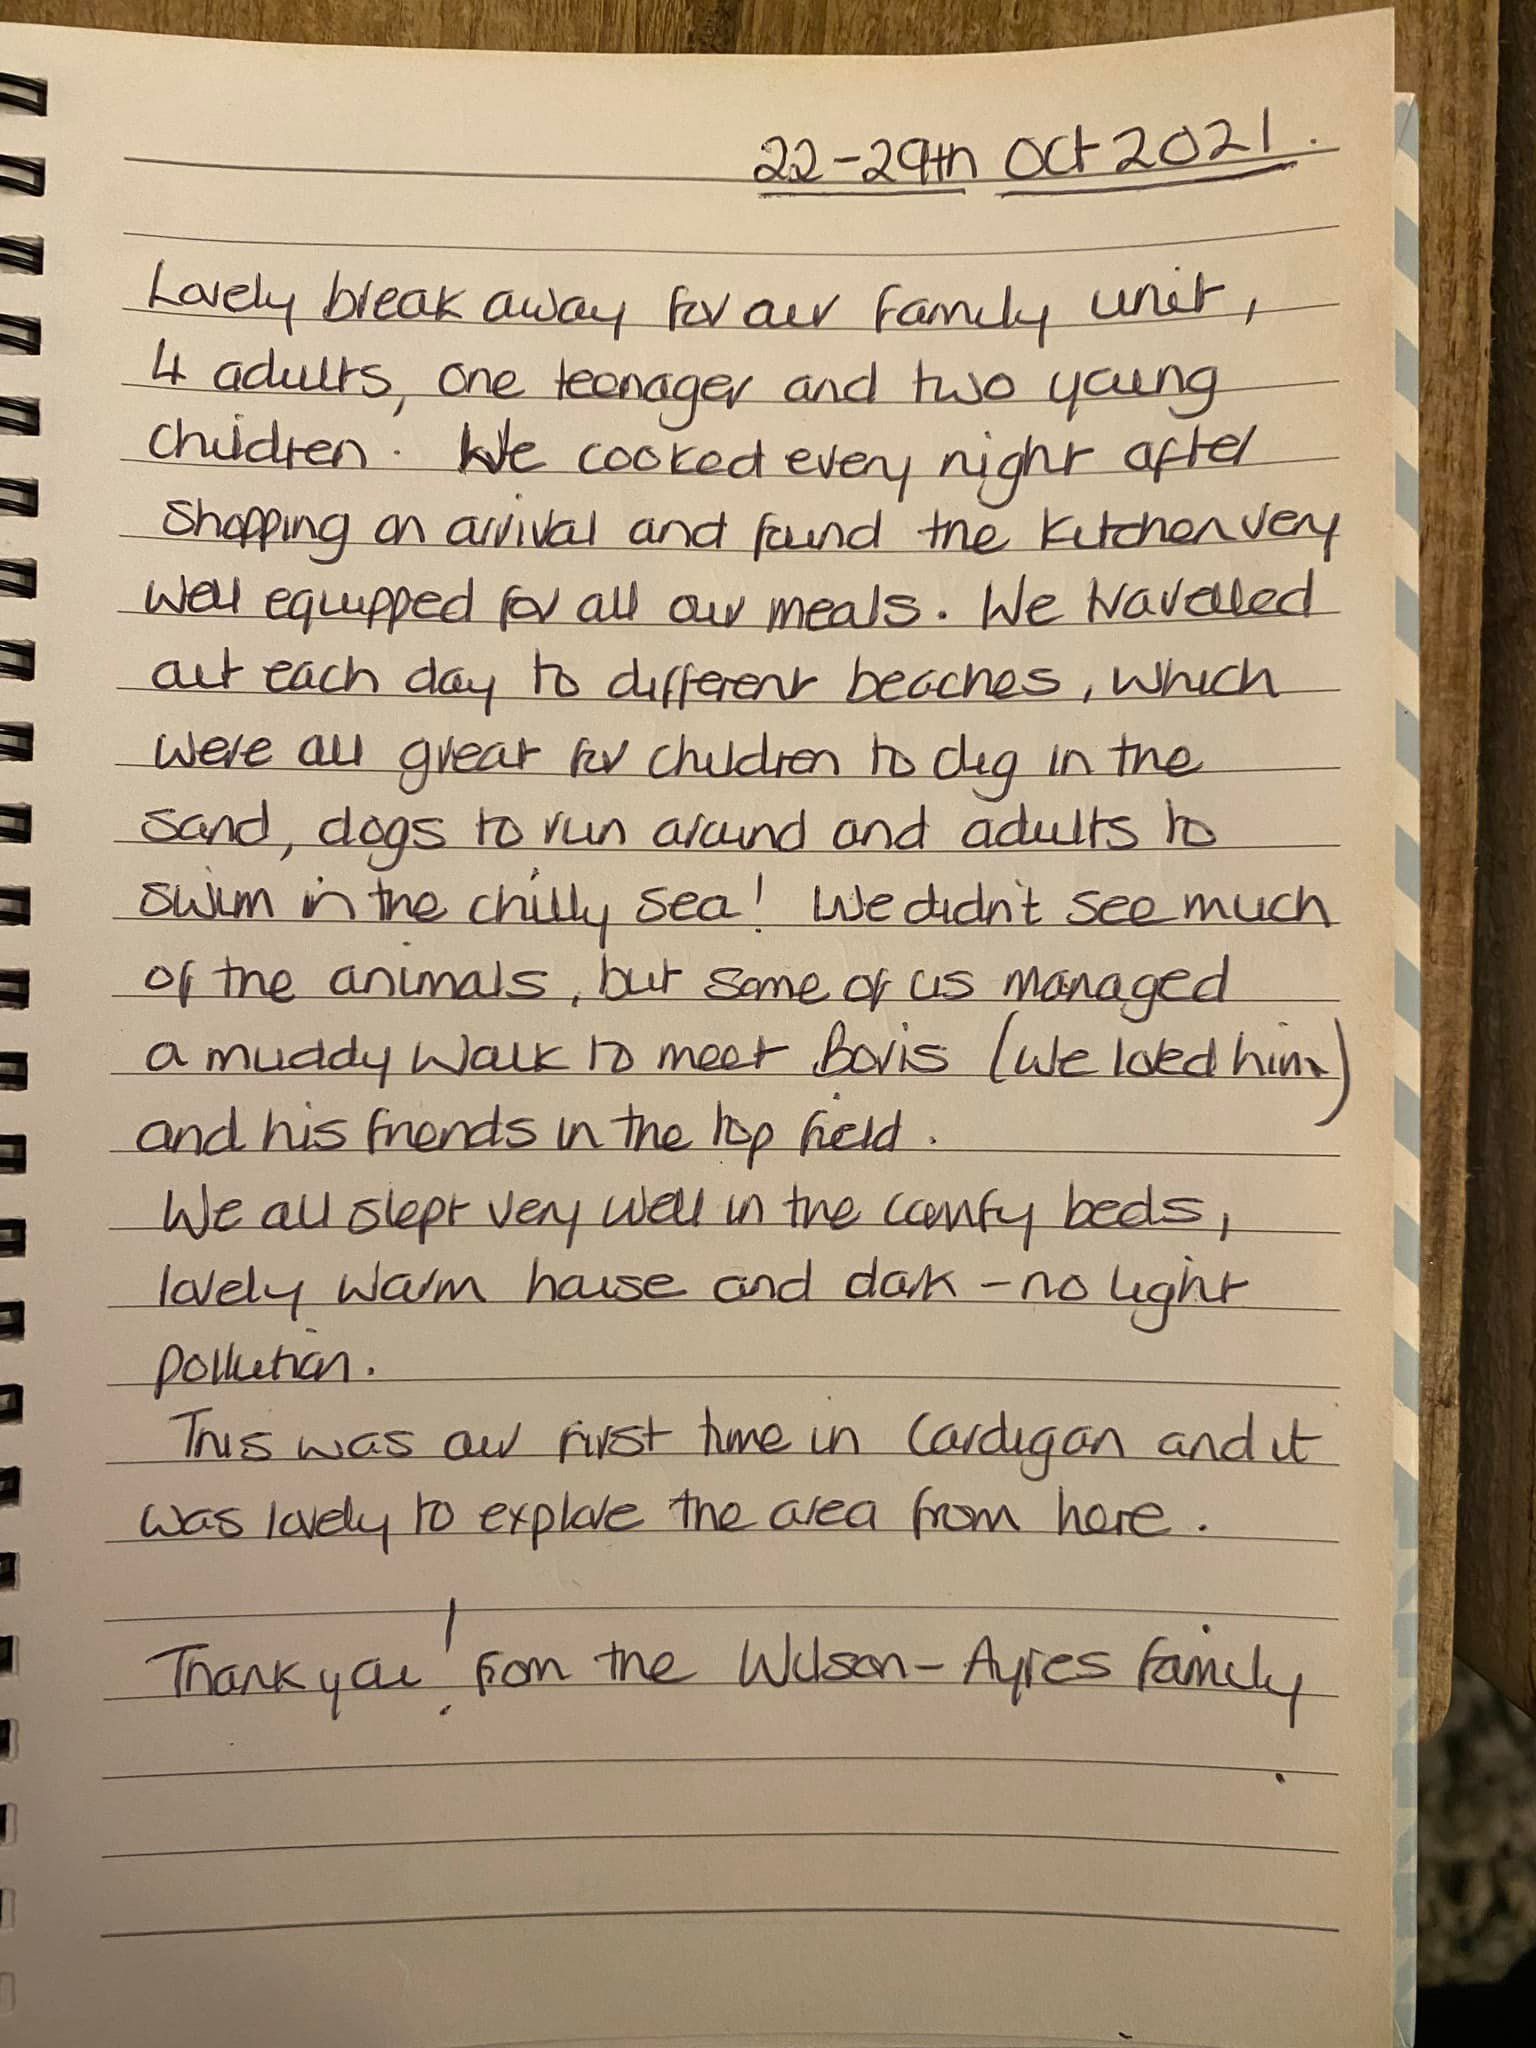 22-29th Oct 2021.
Lovely break away for our family unit,
4 adults, one teenager and two young
children. We cooked every night after
shopping on arrival and found the kitchen very
well equipped for all our meals. We travelled
out each day to different beaches, which
were all great for children to dig in the
sand, dogs to run around and adults to
swim in the chilly sea! We didn't see much
of the animals, but some of us managed
a muddy walk to meet Boris (we loved him)
and his friends in the top field.
We all slept very well in the comfy beds,
lovely warm house and dark - no light
pollution.
This was our first time in Cardigan and it
was lovely to explore the area from here.
Thank you! from the Wilson-Ayres family